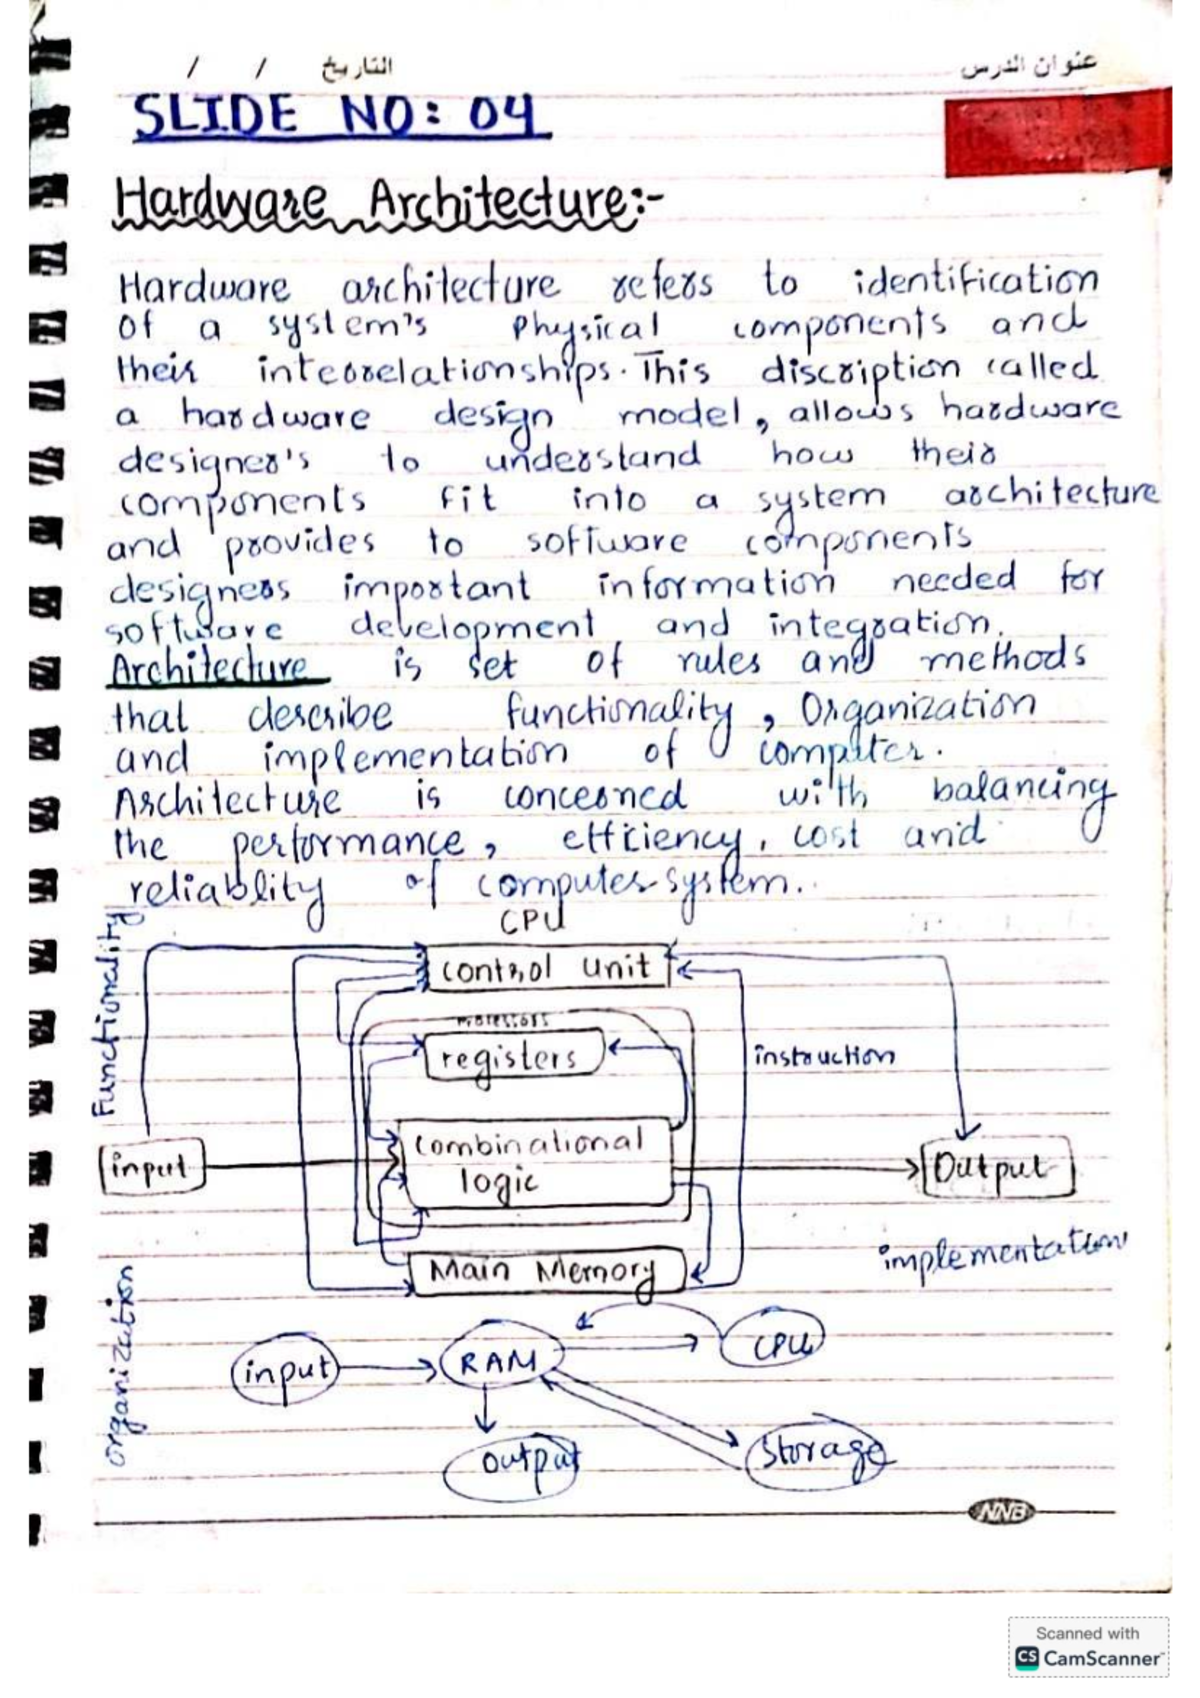 / / التاريخ عنوان الدرس
SLIDE NO: 04
Hardware Architecture:-
Hardware architecture refers to identification
of a system's Physical components and
their interrelationships. This discription called
a hardware design model, allows hardware
designer's to understand how their
components fit into a system architecture
and provides to software components
designers important information needed for
software development and integration.
Architecture is set of rules and methods
that describe functionality, Organization
and implementation of computer.
Architecture is concerned with balancing
the performance, efficiency, cost and
reliablity of computer system..
CPU
Functionality
control unit
processors
registers
instruction
input
combinational
logic
Output
implementation
Main Memory
organization
input
RAM
CPU
output
Storage
NNB
Scanned with
CS CamScanner